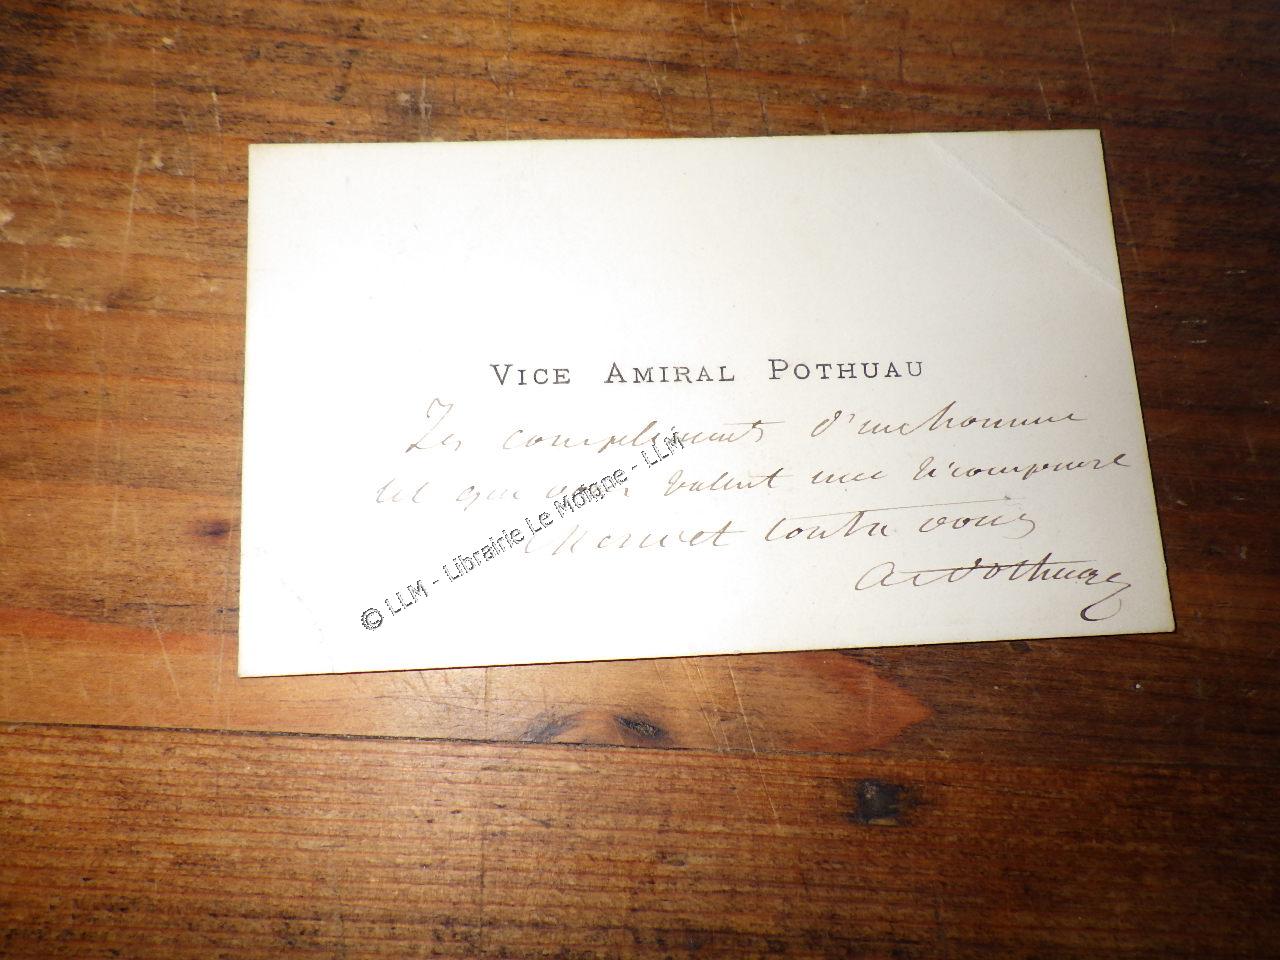 VICE AMIRAL POTHUAU
Les compliments d'un homme
tel que vous valent une récompense
Merci et tout à vous
A Pothuau
© LLM - Librairie Le Moigne - LLM